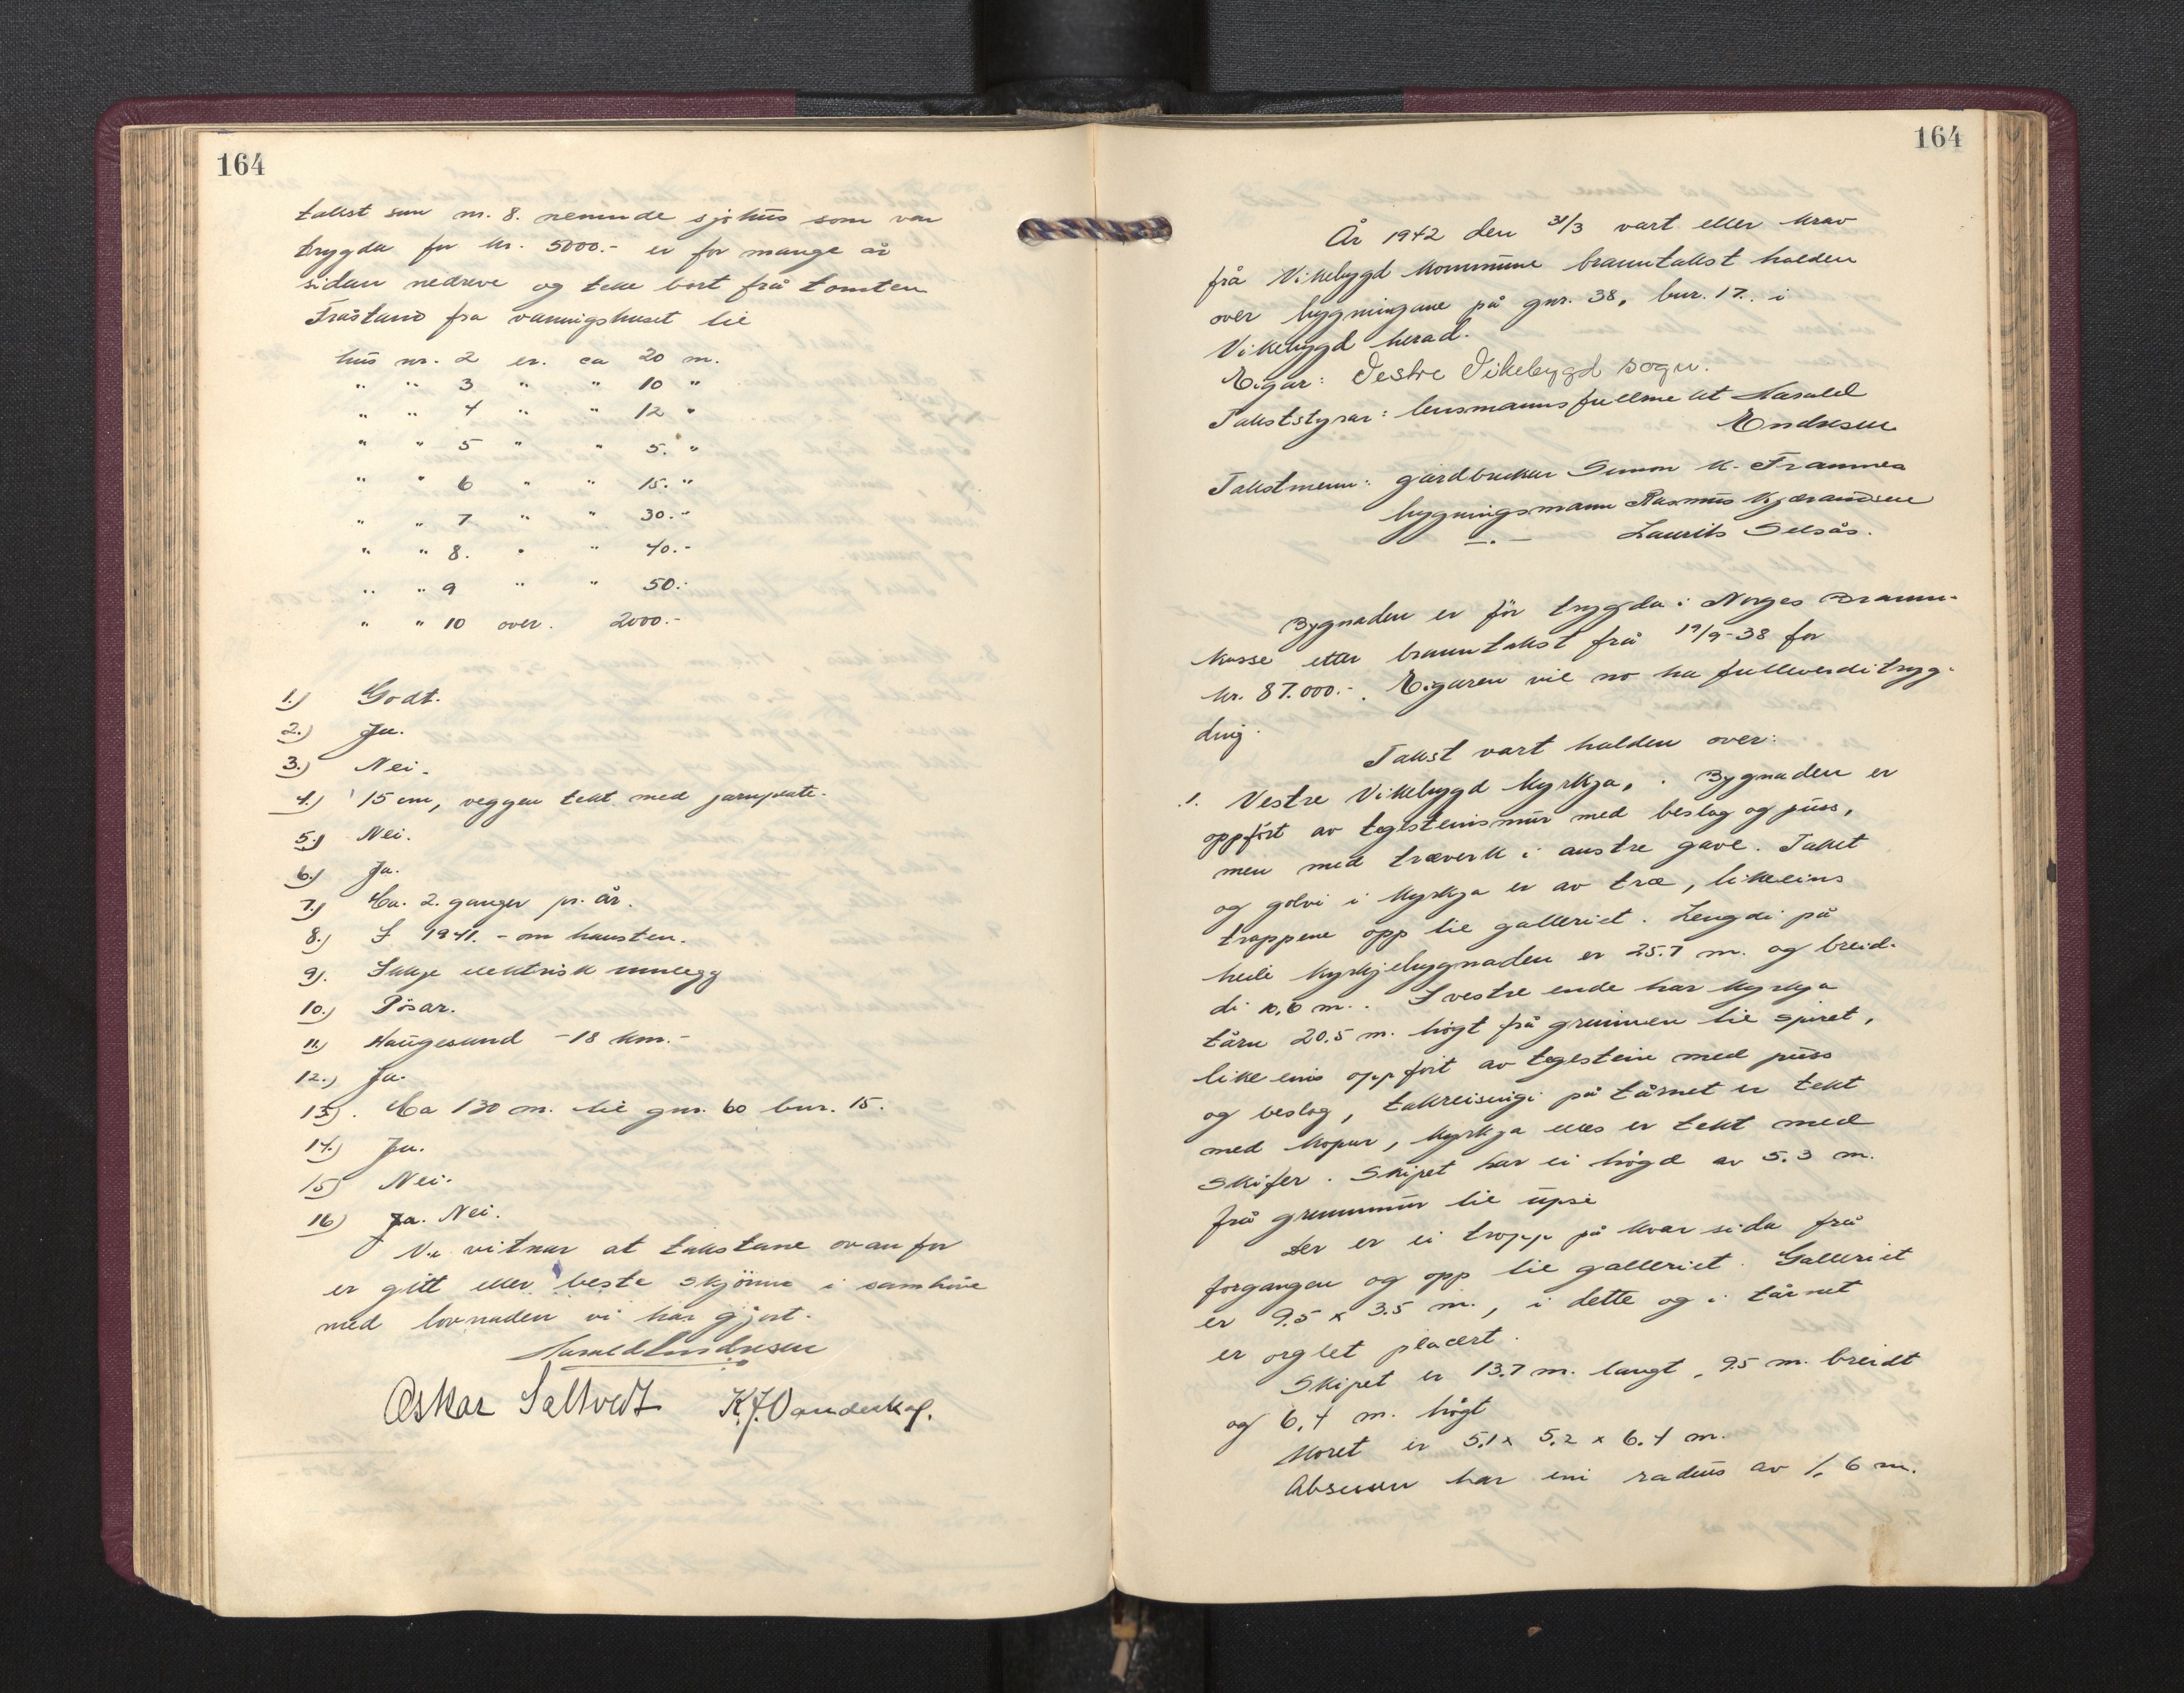 164
takst sum nr. 8. nemnde sjøhus som var
trygda for kr. 5000.- er for mange år
sidan nedreve og teke bort frå tomten
Fråstand fra vaaningshuset til
hus nr. 2 er. ca 20 m.
" " 3 " " 10 "
" " 4 " " 12 "
" " 5 " " 5. "
" " 6 " " 15. "
" " 7 " " 30.-
" " 8. " " 40.-
" " 9 " " 50.-
" " 10 over. 2000.-
1.) Godt.
2.) Ja.
3.) Nei.
4.) 15 cm, veggen tekt med jarnplate.
5.) Nei.
6.) Ja.
7.) Ca. 2. ganger pr. år.
8.) I 1941. - om hausten.
9). Ikkje elektrisk innlegg
10.) Pøsar.
11.) Haugesund - 18 km.-
12.) Ja.
13). Ca 130 m. til gnr. 60 bnr. 15.
14.) Ja.
15) Nei.
16) Ja. Nei.
Vi vitnar at takstane ovanfor
er gitt etter beste skjønn i samhøve
med lovnaden vi har gjort.
Harald Endresen
Oskar Saltvedt K.J. Vanderkag.
164
År 1942 den 31/3 vart etter krav
frå Vikebygd kommune branntakst halden
over bygningane på gnr. 38, bnr. 17. i
Vikebygd herad.
Eigar: Vestre Vikebygd sogn.
Takststyrar: lensmannsfullmektig Harald
Endresen
Takstmenn: gardbrukar Simon K. Framnes
bygningsmann Rasmus Kjærandsen
—"— Laurits Selsås.
Bygnaden er før trygda i Norges Brann-
kasse etter branntakst frå 19/9-38 for
kr. 87.000.-. Eigaren vil no ha fullverditryg-
ding.
Takst vart halden over:
1. Vestre Vikebygd kyrkja, . Bygnaden er
oppført av teglsteinsmur med beslag og puss,
men med treverk i austre gavl. Taket
og golvi i kyrkja er av tre, likeeins
trappene opp til galleriet. Lengdi på
heile kyrkjebygnaden er 25.7 m. og breid-
di 10,6 m.. I vestre ende har kyrkja
tårn 20.5 m. høgt frå grunnen til spiret,
likeeins oppført av teglstein med puss
og beslag, takreisingi på tårnet er tekt
med kopar, kyrkja elles er tekt med
skifer. Skipet har ei høgd av 5.3 m.
frå grunnmur til upsi
Der er ei tropp på kvar sida frå
forgangen og opp til galleriet. Galleriet
er 9.5 x 3.5 m., i dette og i tårnet
er orglet placert.
Skipet er 13.7 m. langt, 9.5 m. breidt
og 6.4 m. høgt
Koret er 5.1 x 5.2 x 6.4 m.
Absesen har ein radius av 1,6 m.